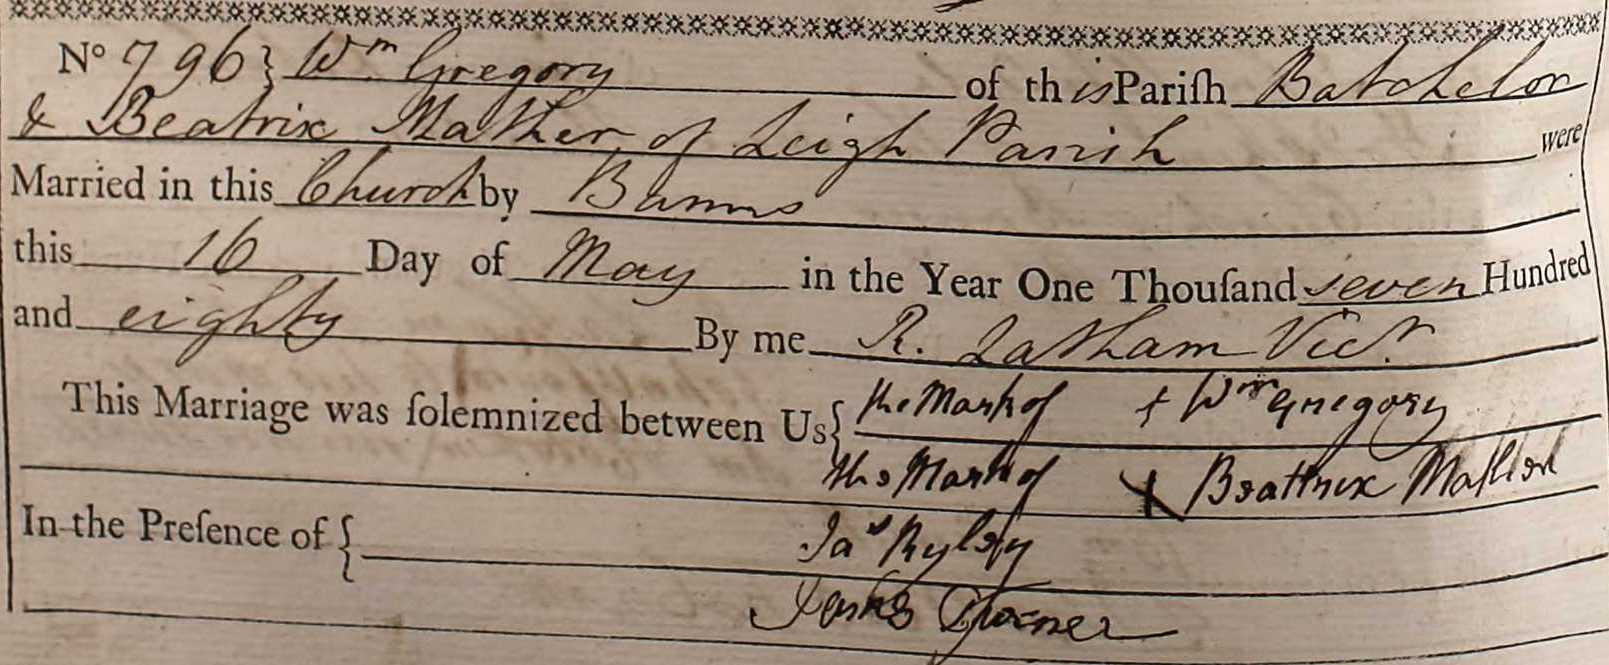 No 796} Wm Gregory of this Pariſh Batchelor
& Beatrix Mather of Leigh Parish were
Married in this Church by Banns
this 16 Day of May in the Year One Thouſand seven Hundred
and eighty By me R. Latham Vicr.
This Marriage was ſolemnized between Us { the Mark of + Wm Gregory
the Mark of X Beattrix Mather
In the Preſence of { Jas Ryley